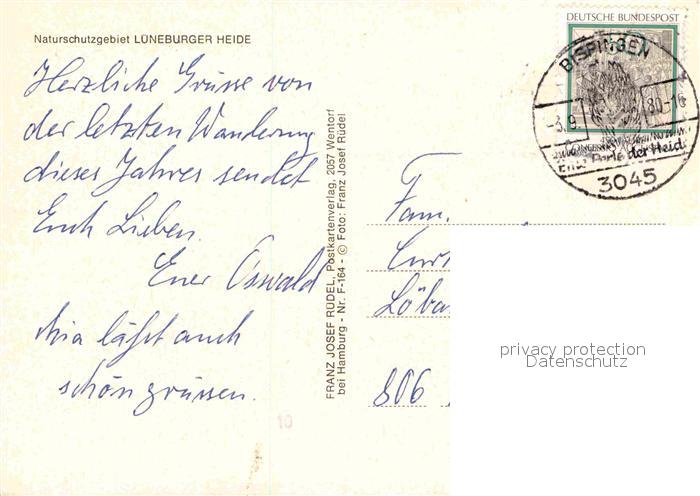 Naturschutzgebiet LÜNEBURGER HEIDE
Herzliche Grüsse von
der letzten Wanderung
dieses Jahres sendet
Euch Lieben
Euer Oswald
läßt auch
schön grüssen.
FRANZ JOSEF RÜDEL, Postkartenverlag, 2057 Wentorf
bei Hamburg - Nr. F-164 - © Foto: Franz Josef Rüdel
DEUTSCHE BUNDESPOST
BISPINGEN
-3.9
80-16
Perle der Heide
3045
Fam.
Löba
806
privacy protection
Datenschutz
10